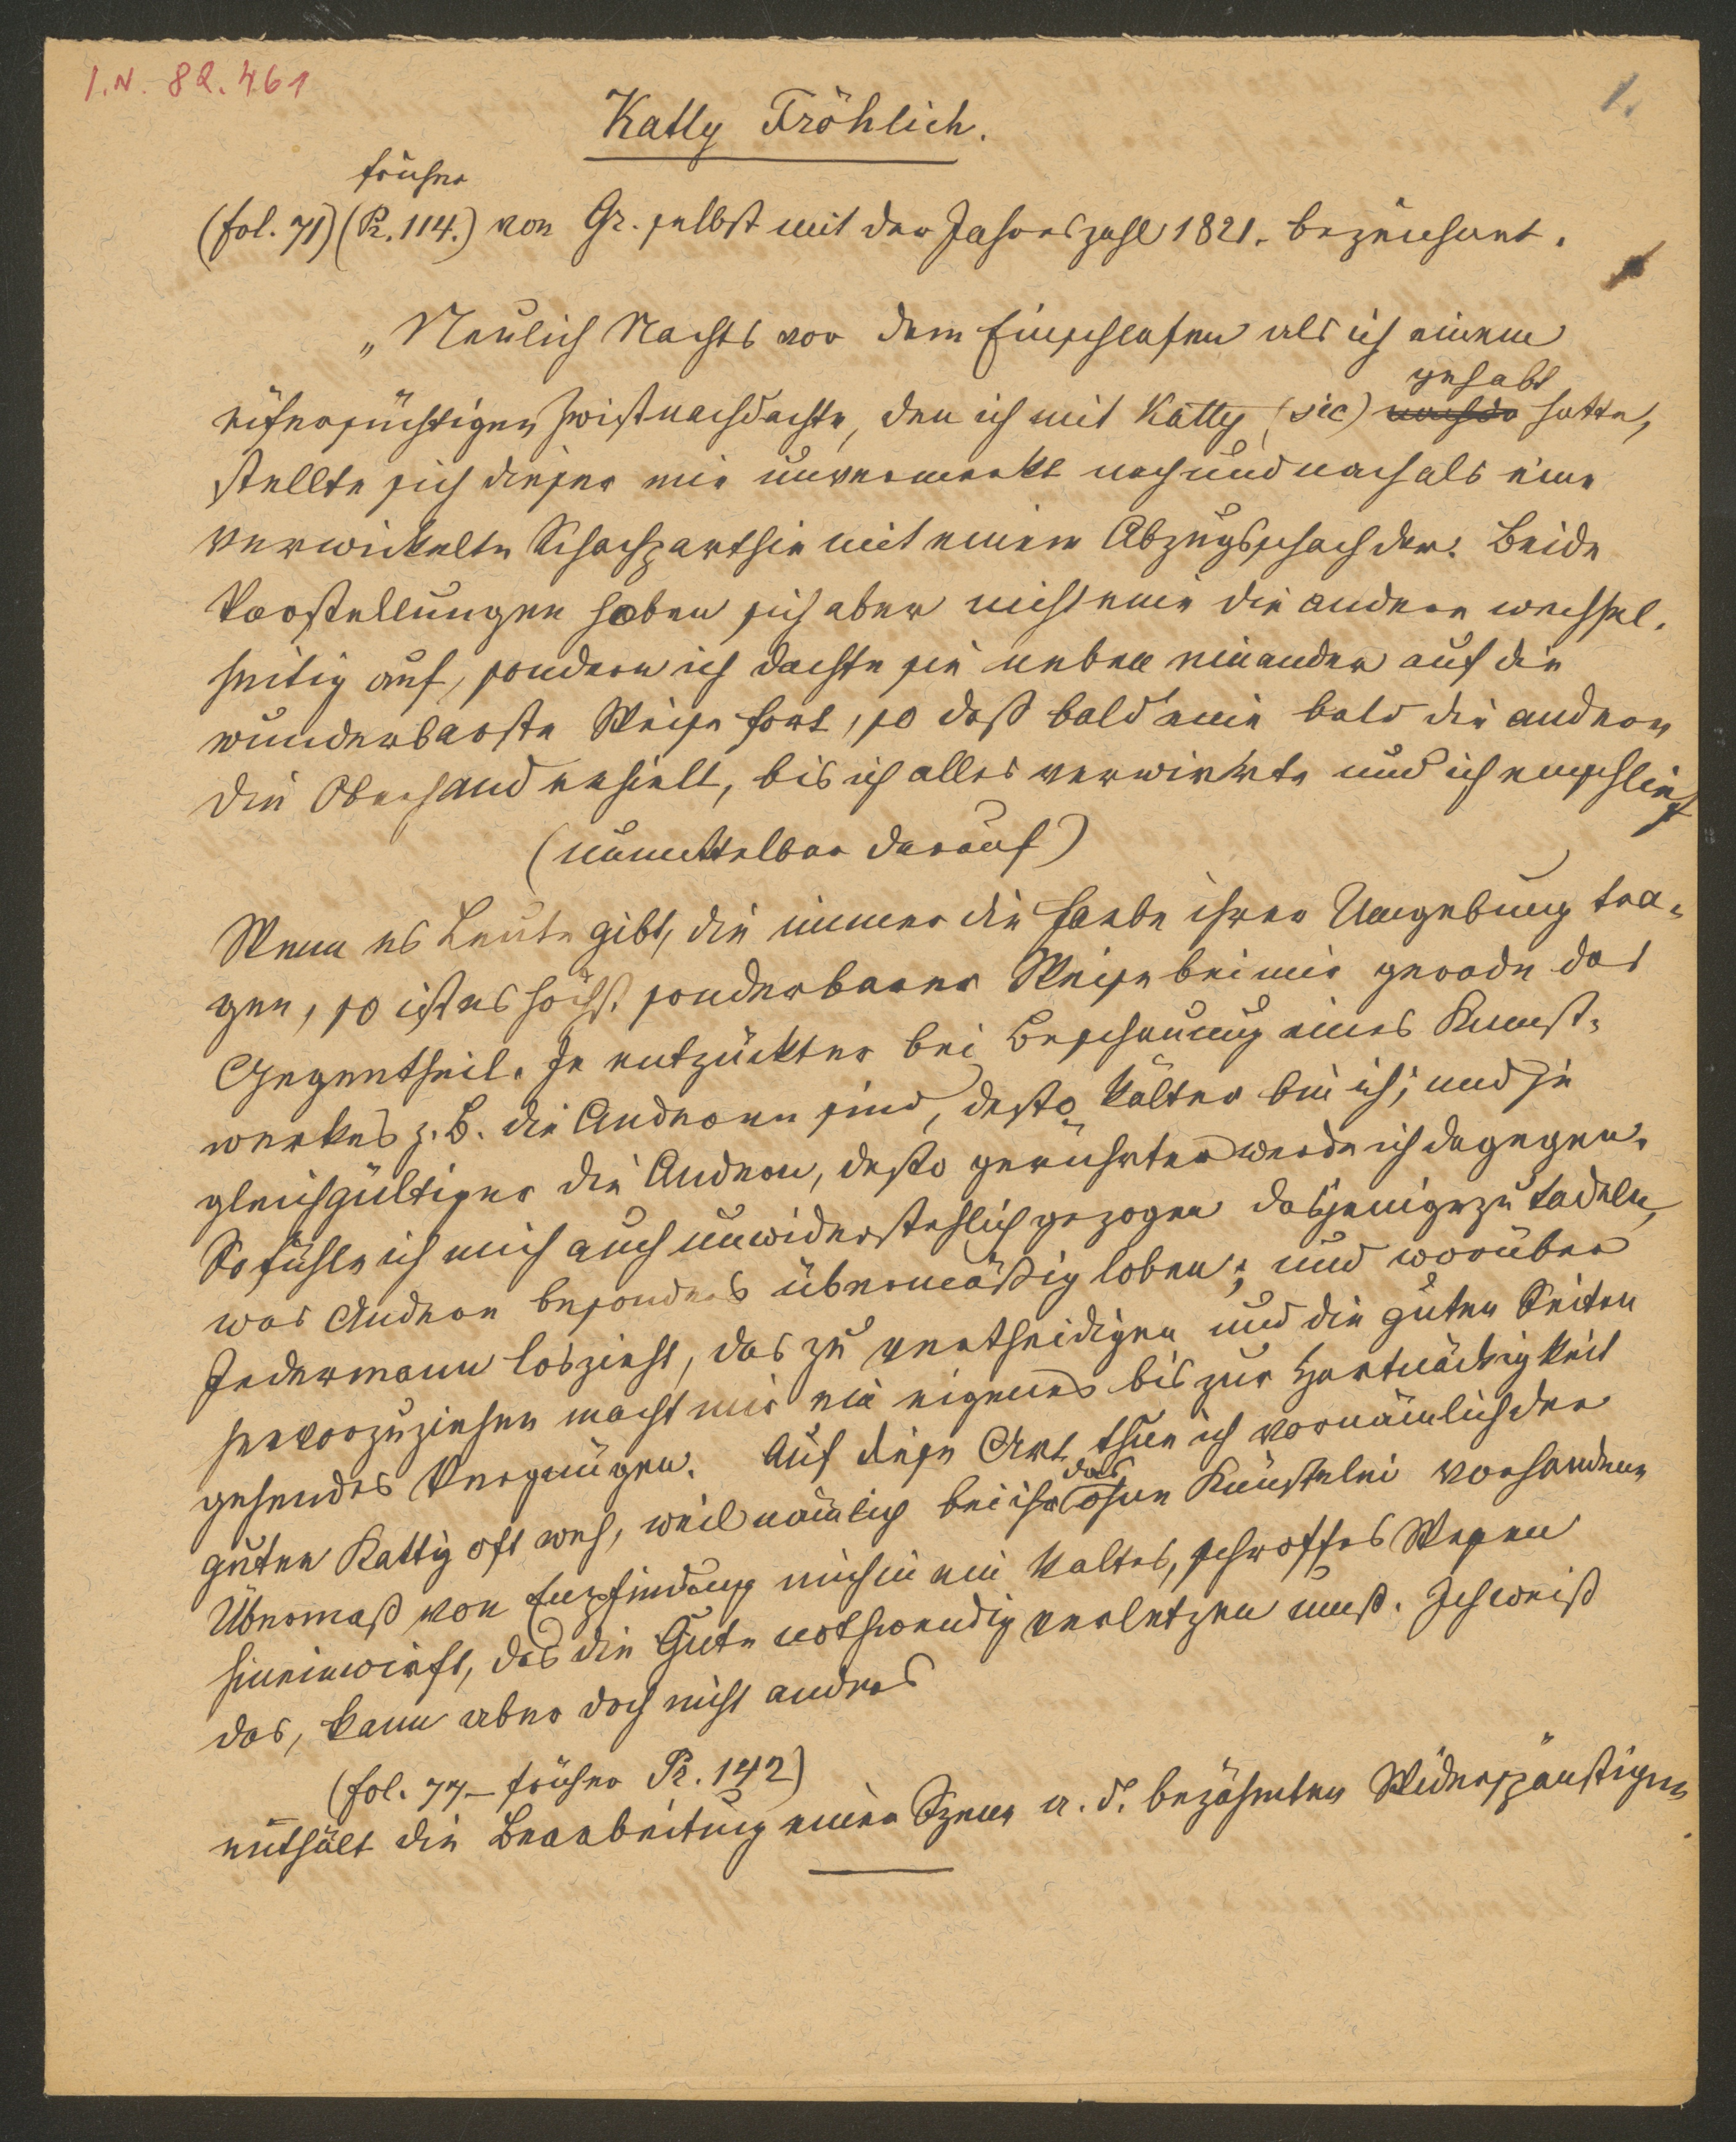 I.N. 82.461
1.
Katty Fröhlich.
früher
(fol. 71) (P. 114.) von Gr. selbst mit der Jahreszahl 1821. bezeichnet.
„Neulich Nachts vor dem Einschlafen als ich einem
gehabt
eifersüchtigen Zwist nachdachte, den ich mit Katty (sic) hatte,
stellte sich dieser mir unvermerkt nach und nach als eine
verwickelte Schachparthie mit einem Abzugsschach dar. Beide
Vorstellungen hoben sich aber nicht eine die andere wechsel-
seitig auf, sondern ich dachte sie neben einander auf die
wunderbarste Weise fort, so daß bald eine bald die andere
die Oberhand erhielt, bis ich alles verwirrte und ich entschlief
(unmittelbar darauf)
Wenn es Leute gibt, die immer die Farbe ihrer Umgebung tra-
gen, so ist es höchst sonderbarer Weise bei mir gerade das
Gegentheil. Je entzückter bei Beschauung eines Kunst-
werkes z. B. die Anderen sind, desto kälter bin ich; und je
gleichgültiger die Andern, desto gerührter werde ich dagegen.
So fühle ich mich auch unwiderstehlich gezogen dasjenige zu tadeln,
was Andere besonders übermäßig loben; und worüber
Jedermann loszieht, das zu vertheidigen und die guten Seiten
hervorzuziehen macht mir ein eigenes bis zur Hartnäckigkeit
gehendes Vergnügen. Auf diese Art thue ich vornämlich der
das
guten Katty oft weh, weil nämlich bei ihr ohne Künstelei vorhandene
Übermaß von Empfindung mich in ein kaltes, schroffes Wesen
hineinwirft, das die Gute nothwendig verletzen muß. Ich weiß
das, kann aber doch nicht anders
(fol. 77 – früher P. 142)
enthält die Bearbeitung einer Szene a. d. bezähmten Widerspänstigen.